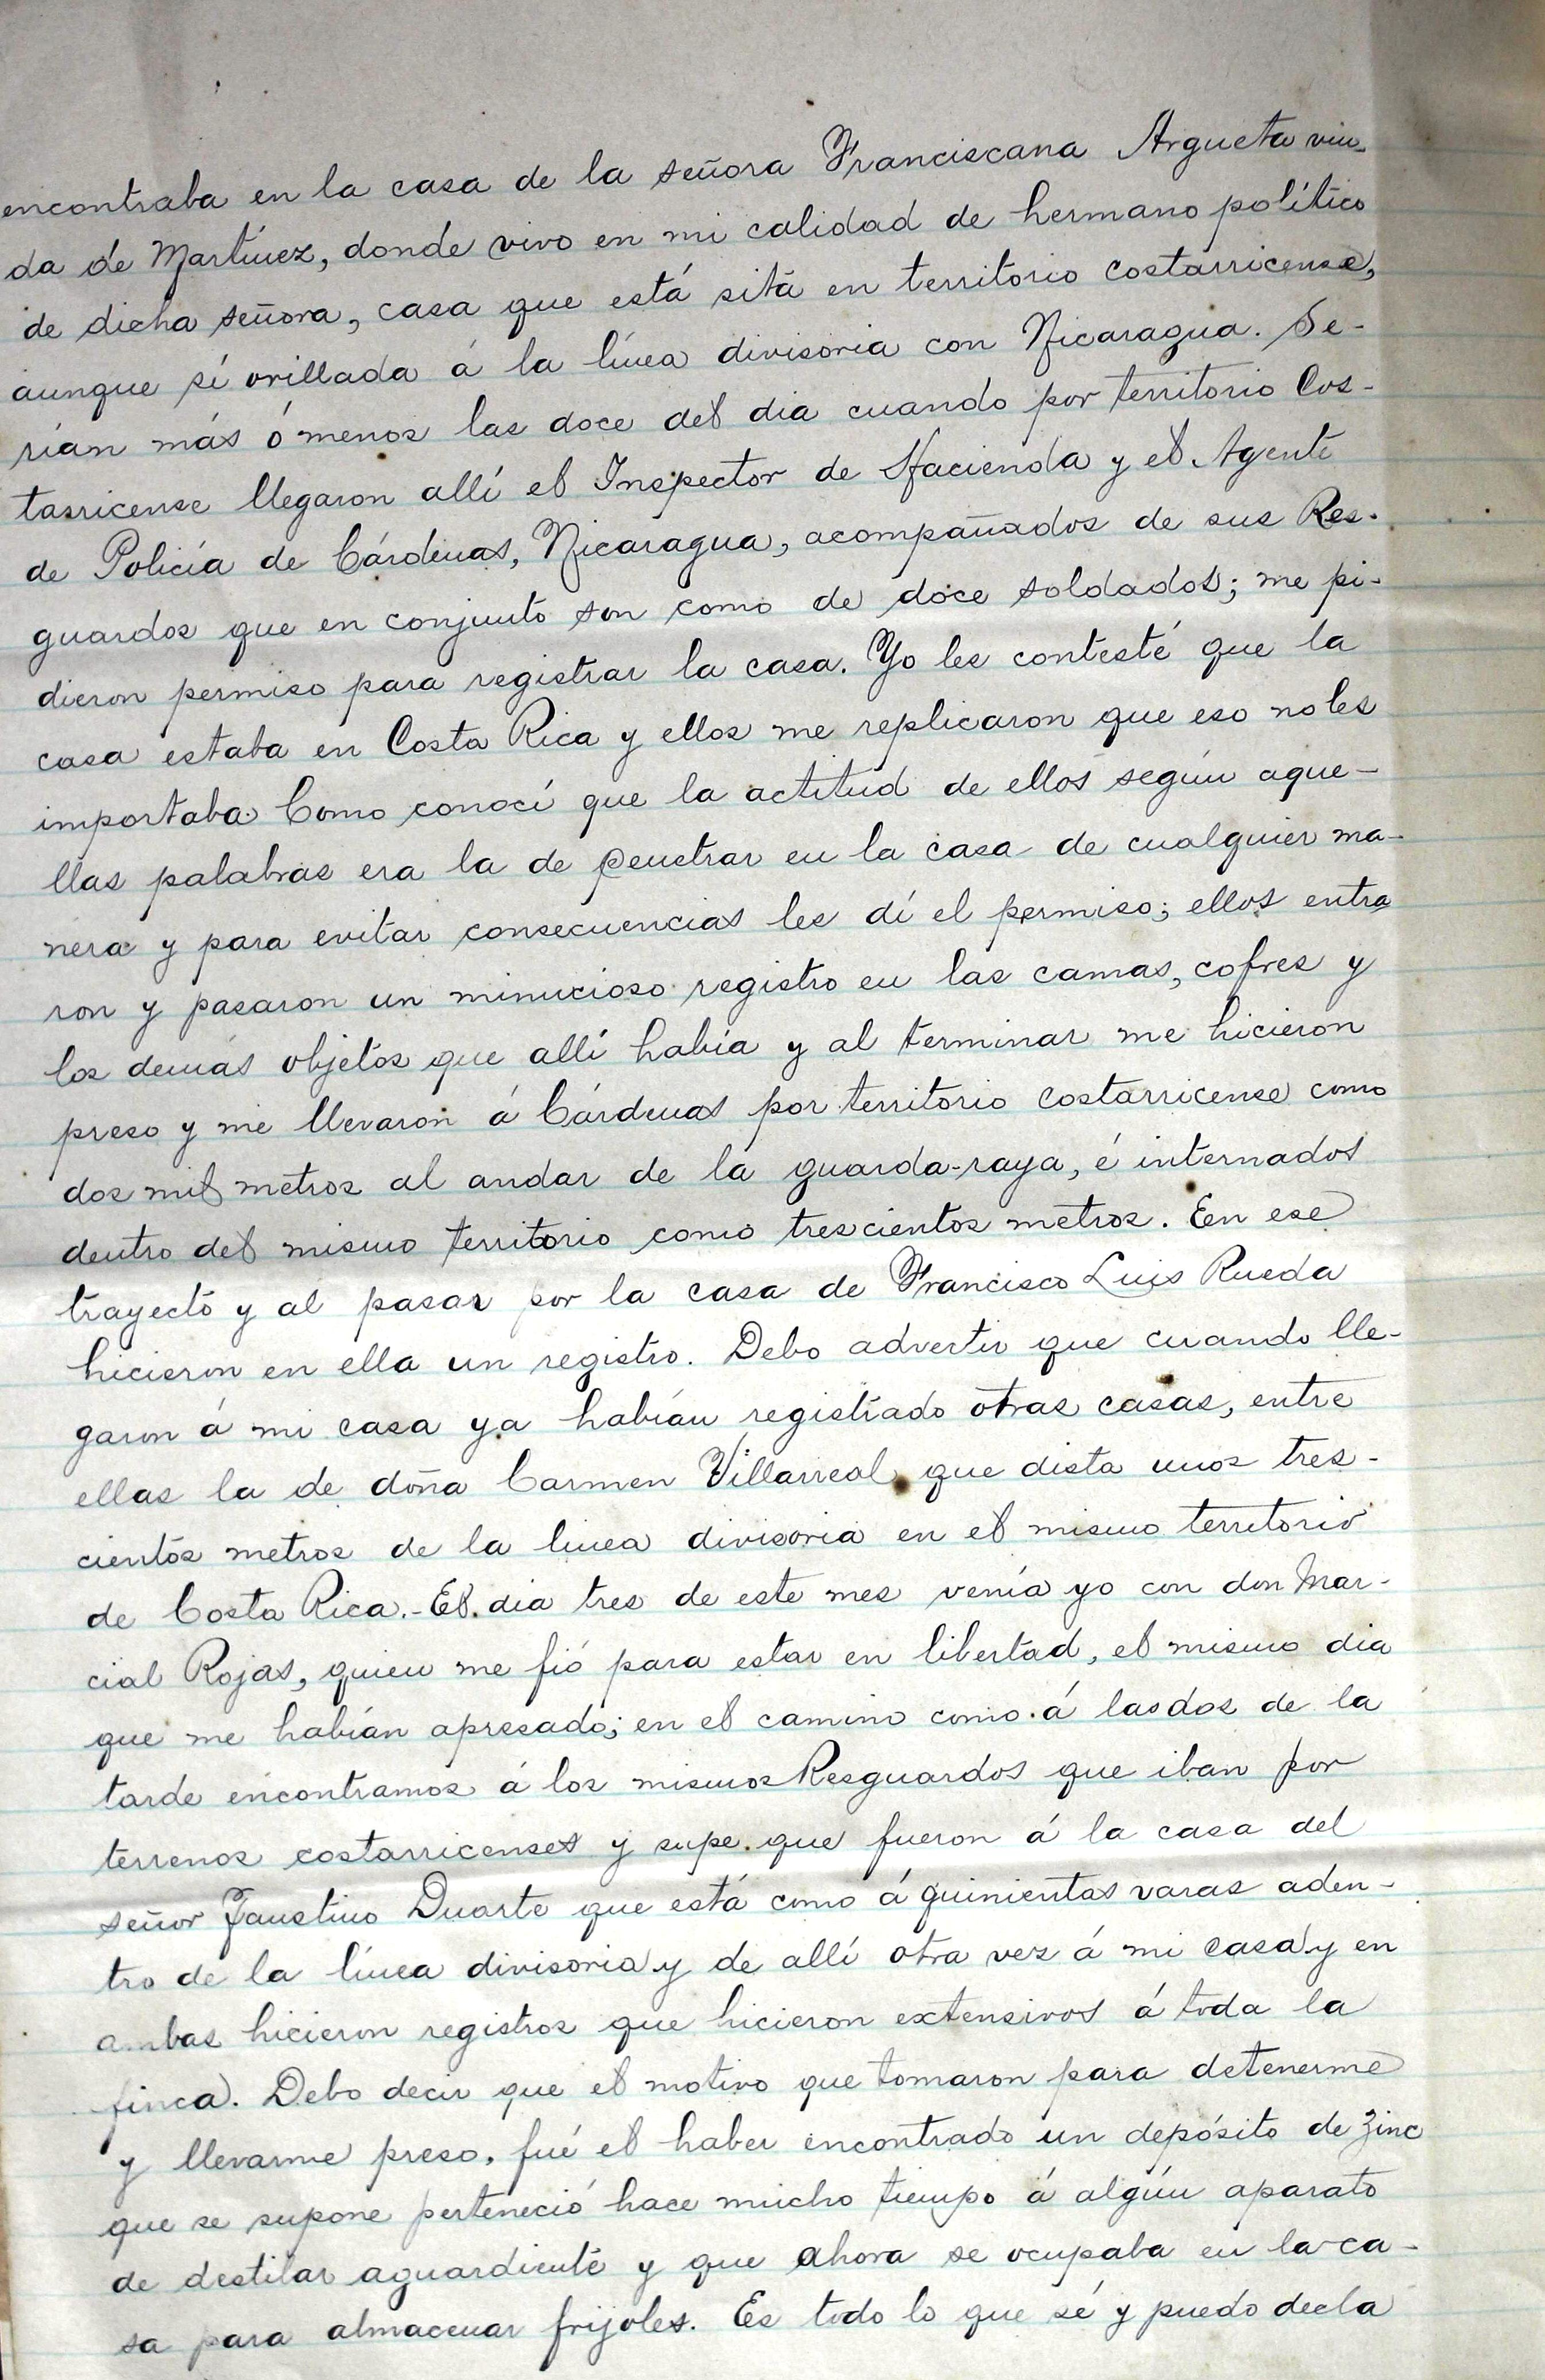 encontraba en la casa de la señora Franciscana Argueta viu-
da de Martínez, donde vivo en mi calidad de hermano político
de dicha señora, casa que está sita en territorio costarricense,
aunque sí orillada á la línea divisoria con Nicaragua. Se-
rían más ó menos las doce del dia cuando por territorio Cos-
tarricense llegaron allí el Inspector de Hacienda y el Agente
de Policía de Cárdenas, Nicaragua, acompañados de sus Res-
guardos que en conjunto son como de doce soldados; me pi-
dieron permiso para registrar la casa. Yo les contesté que la
casa estaba en Costa Rica y ellos me replicaron que eso no les
importaba. Como conocí que la actitud de ellos según aque-
llas palabras era la de penetrar en la casa de cualquier ma-
nera y para evitar consecuencias les dí el permiso; ellos entra
ron y pasaron un minucioso registro en las camas, cofres y
los demás objetos que allí había y al terminar me hicieron
preso y me llevaron á Cárdenas por territorio costarricense como
dos mil metros al andar de la guarda-raya, é internados
dentro del mismo territorio como trescientos metros. En ese
trayecto y al pasar por la casa de Francisco Luis Rueda
hicieron en ella un registro. Debo advertir que cuando lle-
garon á mi casa ya habían registrado otras casas, entre
ellas la de doña Carmen Villarreal que dista unos tres-
cientos metros de la linea divisoria en el mismo territorio
de Costa Rica.- El dia tres de este mes venía yo con don Mar-
cial Rojas, quien me fió para estar en libertad, el mismo dia
que me habían apresado; en el camino como á las dos de la
tarde encontramos á los mismos Resguardos que iban por
terrenos costarricenses y supe que fueron á la casa del
señor Faustino Duarte que está como á quinientas varas aden-
tro de la línea divisoria y de allí otra vez á mi casa y en
ambas hicieron registros que hicieron extensivos á toda la
finca. Debo decir que el motivo que tomaron para detenerme
y llevarme preso, fué el haber encontrado un depósito de zinc
que se supone perteneció hace mucho tiempo á algún aparato
de destilar aguardiente y que ahora se ocupaba en la ca-
sa para almacenar frijoles. Es todo lo que sé y puedo decla